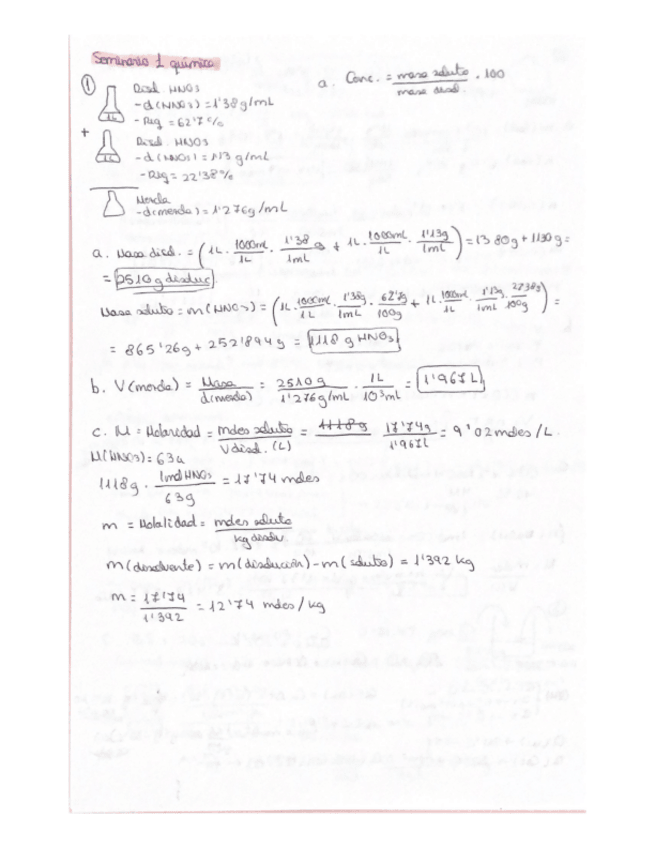 Seminario 1 química
①
Disol. HNO3
-d(HNO3) = 1'38 g/mL
-Riq = 62'7%
1L
+
Disol. HNO3
-d(HNO3) = 1'13 g/mL
-Riq = 22'38%
1L
Mezcla
-d(mezcla) = 1'276g/mL
a. Conc. = masa soluto / masa disol. · 100
a. Masa disol. = (1L · 1000mL/1L · 1'38g/1mL + 1L · 1000mL/1L · 1'13g/1mL) = 1380g + 1130g =
= 2510 g disoluc.
Masa soluto = m(HNO3) = (1L · 1000mL/1L · 1'38g/1mL · 62'7g/100g + 1L · 1000mL/1L · 1'13g/1mL · 22'38g/100g) =
= 865'26g + 252'894g = 1118 g HNO3
b. V(mezcla) = Masa/d(mezcla) = 2510 g/1'276g/mL · 1L/10³mL = 1'967 L
c. M = Molaridad = moles soluto/V disol. (L) = 1118g 17'74g/1'967L = 9'02 moles/L.
M(HNO3) = 63u
1118g · 1mol HNO3/63g = 17'74 moles
m = Molalidad = moles soluto/kg disolv
m(disolvente) = m(disolución) - m(soluto) = 1'392 kg
m = 17'74/1'392 = 12'74 moles/kg